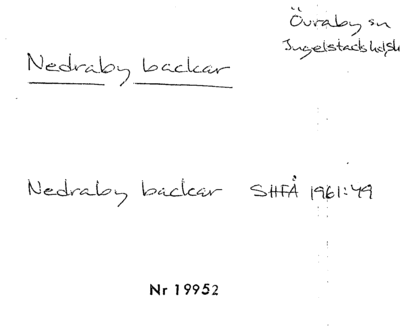 Övraby sn
Ingelstads hd
Nedraby backar
Nedraby backar SHFÅ 1961:49
Nr 19952